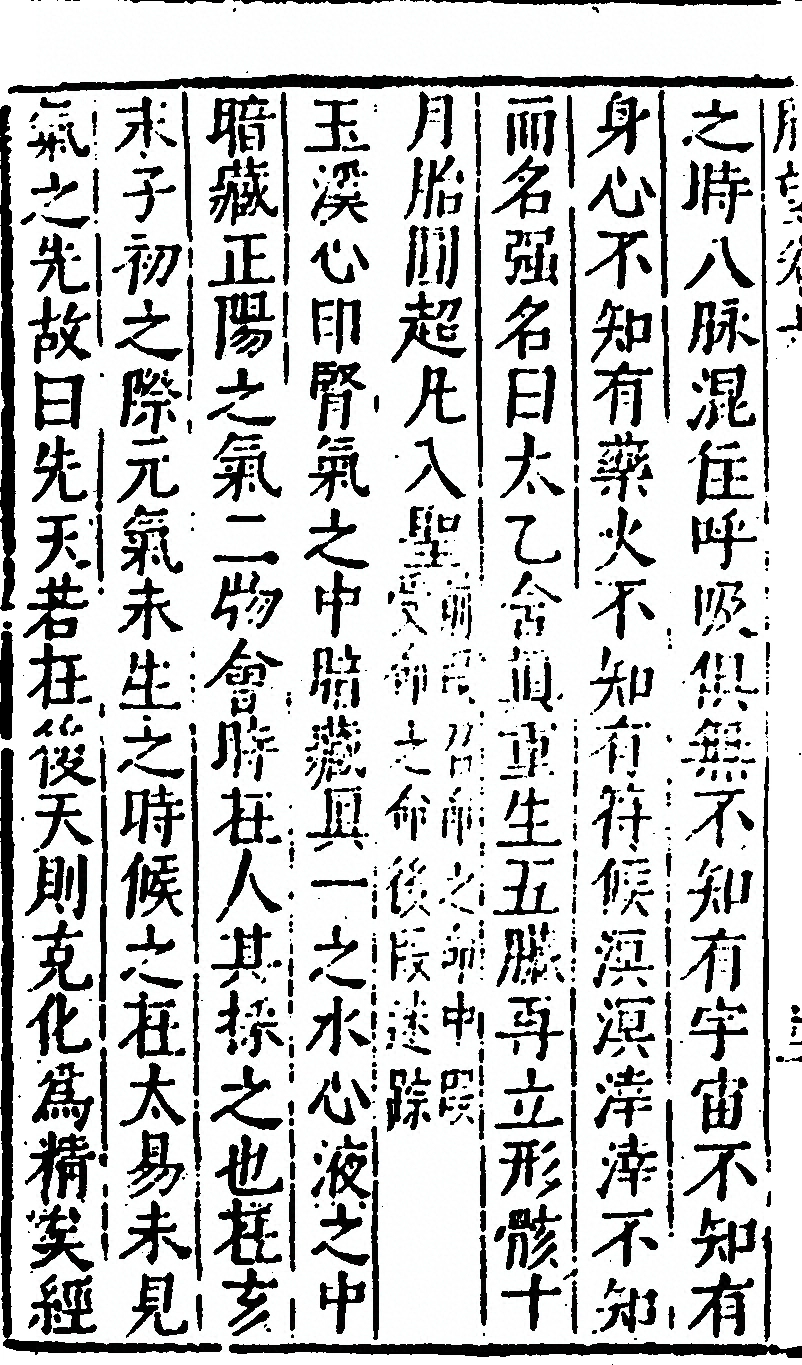 之時八脉混住呼吸俱無不知有宇宙不知有
身心不知有藥火不知有符候溟溟涬涬不知
而名强名曰太乙含真重生五臟再立形骸十
月胎圓超凡入聖
前段召命之命中段
受命之命後段迷踪
玉溪心印腎氣之中暗藏具一之水心液之中
暗藏正陽之氣二物會時在人其採之也在亥
末子初之際元氣未生之時候之在太易未見
氣之先故曰先天若在後天則克化爲精矣經